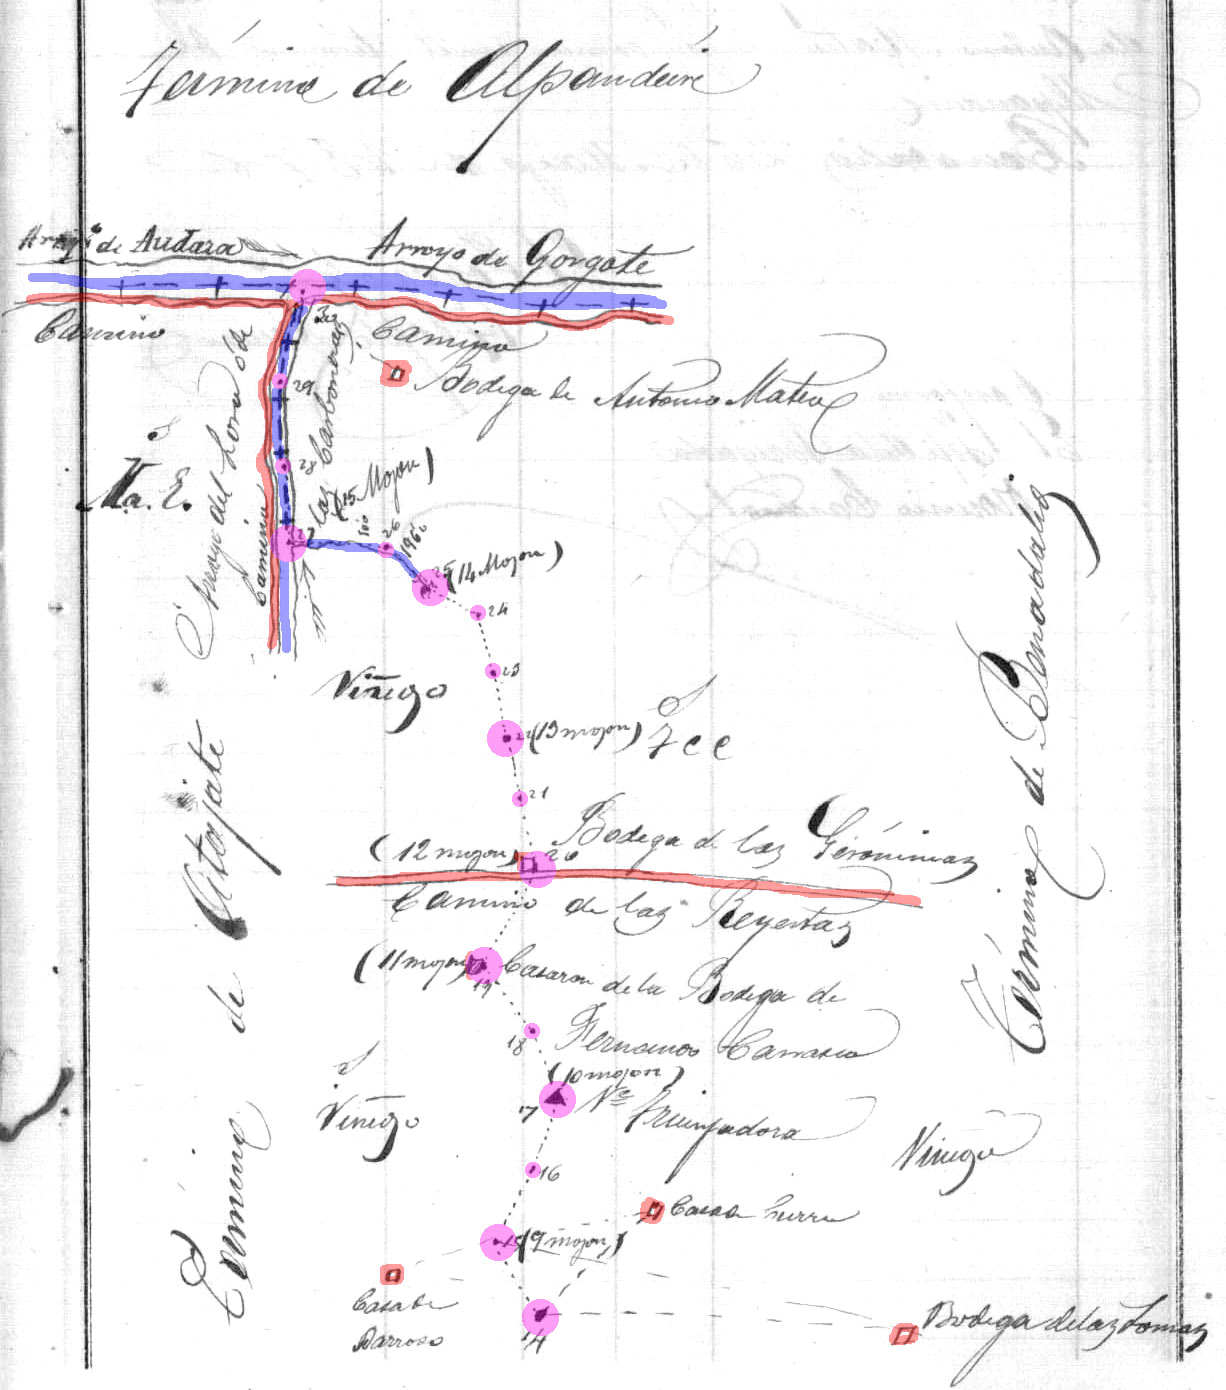 Término de Alpandeire
Arroyo de Audaza
Arroyo de Gorgote
Camino
Camino
30
Bodega de Antonio Mateo
29
Arroyo del Lomo de
las Carboneras
28
Camino
(15 Mojon)
26
25 (14 Mojon)
24
23
Viñego
22 (13 mojon)
21
Término de Benadalid
(12 mojon) 20
Bodega de las Gerónimas
Camino de las Reyertas
(11 mojon)
19
Casaron de la Bodega de
Fernando Carrasco
18
(10 mojon)
17
Viñego
Viñego
16
15 (9 mojon)
Casa de
Barroso
14
Bodega de las Lomas
Término de Atajate